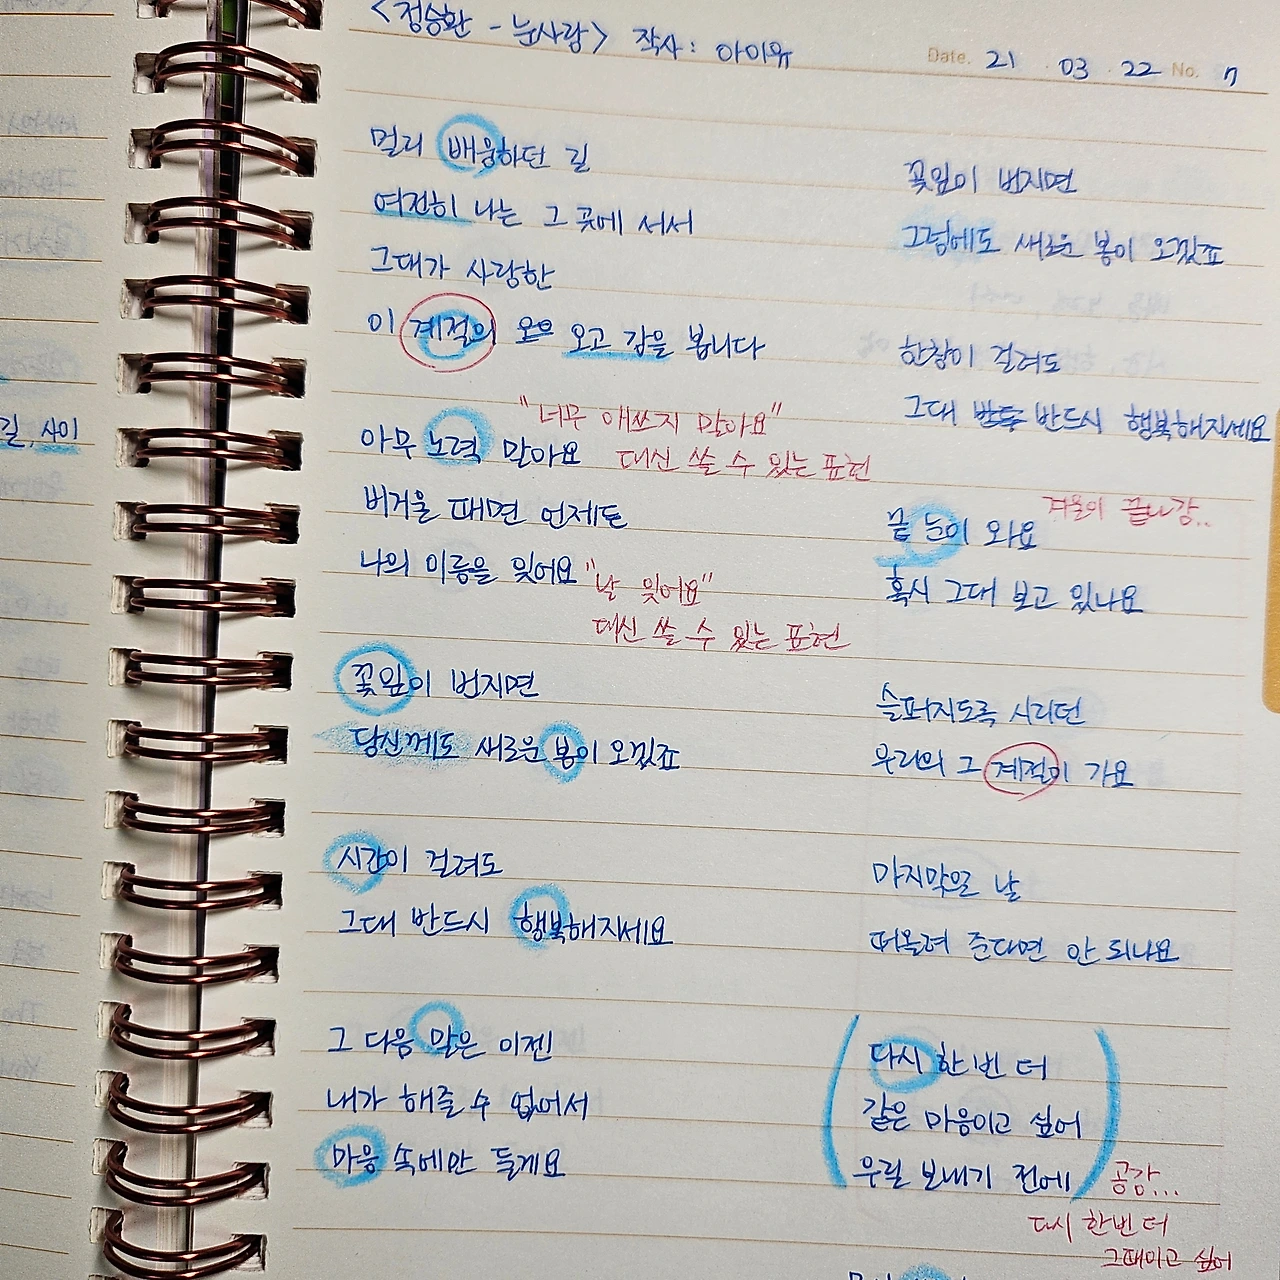 <정승환 - 눈사람> 작사: 아이유
Date. 21 . 03 . 22 No. 7
멀리 배웅하던 길
여전히 나는 그 곳에 서서
그대가 사랑한
이 계절의 오고 감을 봅니다
"너무 애쓰지 말아요"
아무 노력 말아요 대신 쓸 수 있는 표현
버거울 때면 언제든
나의 이름을 잊어요 "날 잊어요"
대신 쓸 수 있는 표현
꽃잎이 번지면
당신께도 새로운 봄이 오겠죠
시간이 걸려도
그대 반드시 행복해지세요
그 다음 말은 이젠
내가 해줄 수 없어서
마음 속에만 둘게요
꽃잎이 번지면
그럼에도 새로운 봄이 오겠죠
한참이 걸려도
그대 반드시 행복해지세요
겨울이 끝나감..
끝 눈이 와요
혹시 그대 보고 있나요
슬퍼지도록 시리던
우리의 그 계절이 가요
마지막으로 날
떠올려 준다면 안 되나요
다시 한 번 더
같은 마음이고 싶어
우릴 보내기 전에
공감...
다시 한번 더
그때이고 싶어
길, 사이